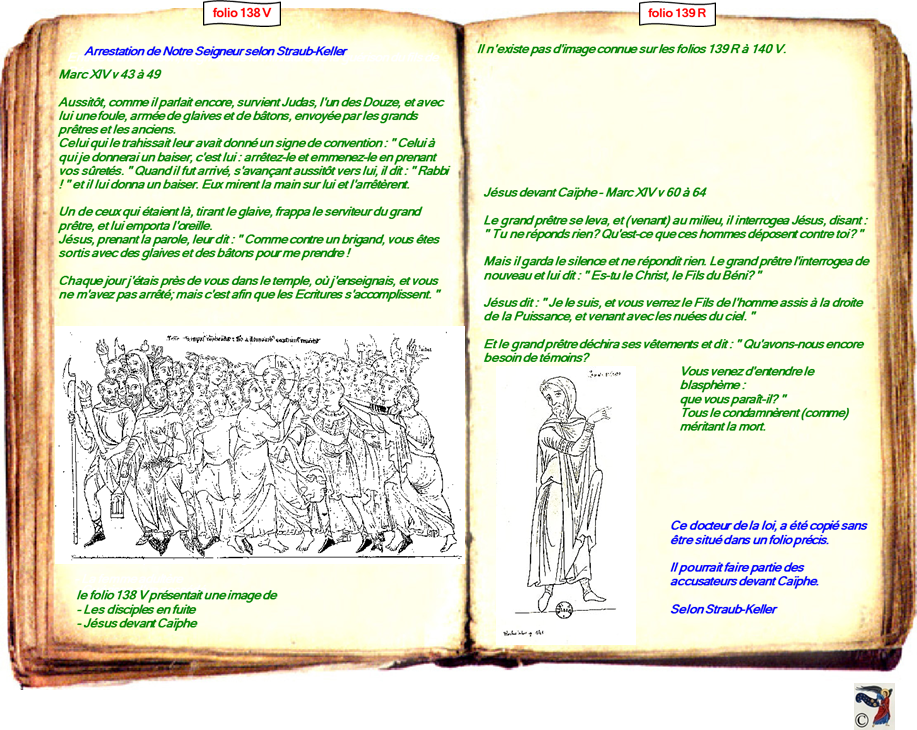 folio 138 V
Arrestation de Notre Seigneur selon Straub-Keller
Marc XIV v 43 à 49
Aussitôt, comme il parlait encore, survient Judas, l'un des Douze, et avec
lui une foule, armée de glaives et de bâtons, envoyée par les grands
prêtres et les anciens.
Celui qui le trahissait leur avait donné un signe de convention : " Celui à
qui je donnerai un baiser, c'est lui : arrêtez-le et emmenez-le en prenant
vos sûretés. " Quand il fut arrivé, s'avançant aussitôt vers lui, il dit : " Rabbi
! " et il lui donna un baiser. Eux mirent la main sur lui et l'arrêtèrent.
Un de ceux qui étaient là, tirant le glaive, frappa le serviteur du grand
prêtre, et lui emporta l'oreille.
Jésus, prenant la parole, leur dit : " Comme contre un brigand, vous êtes
sortis avec des glaives et des bâtons pour me prendre !
Chaque jour j'étais près de vous dans le temple, où j'enseignais, et vous
ne m'avez pas arrêté; mais c'est afin que les Ecritures s'accomplissent. "
le folio 138 V présentait une image de
- Les disciples en fuite
- Jésus devant Caïphe
folio 139 R
Il n'existe pas d'image connue sur les folios 139 R à 140 V.
Jésus devant Caïphe - Marc XIV v 60 à 64
Le grand prêtre se leva, et (venant) au milieu, il interrogea Jésus, disant :
" Tu ne réponds rien? Qu'est-ce que ces hommes déposent contre toi? "
Mais il garda le silence et ne répondit rien. Le grand prêtre l'interrogea de
nouveau et lui dit : " Es-tu le Christ, le Fils du Béni? "
Jésus dit : " Je le suis, et vous verrez le Fils de l'homme assis à la droite
de la Puissance, et venant avec les nuées du ciel. "
Et le grand prêtre déchira ses vêtements et dit : " Qu'avons-nous encore
besoin de témoins?
Vous venez d'entendre le
blasphème :
que vous paraît-il? "
Tous le condamnèrent (comme)
méritant la mort.
Ce docteur de la loi, a été copié sans
être situé dans un folio précis.
Il pourrait faire partie des
accusateurs devant Caïphe.
Selon Straub-Keller
©